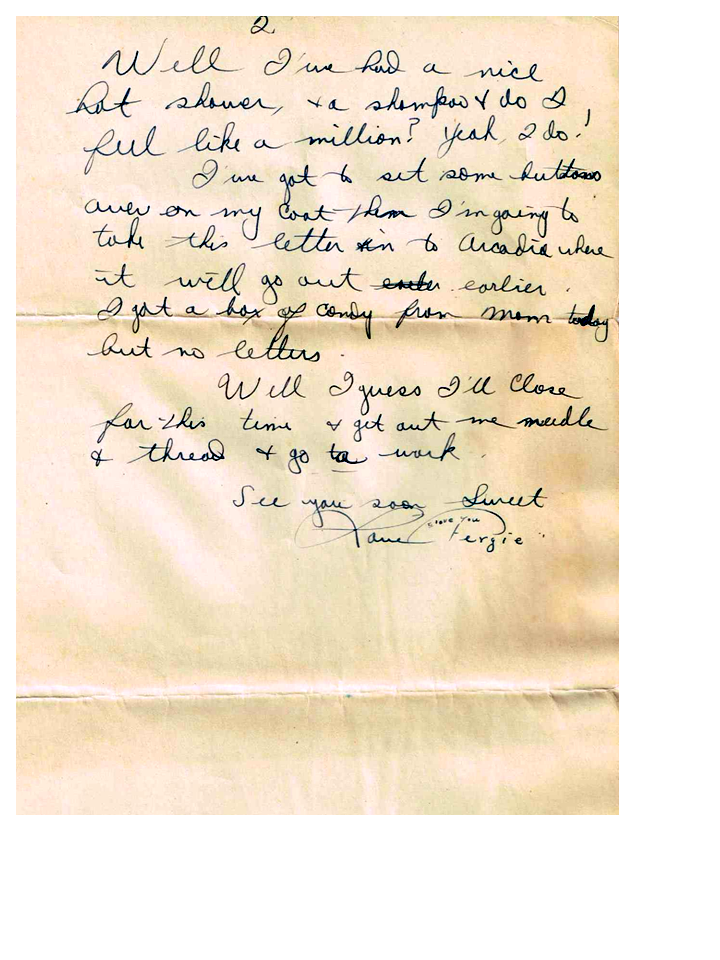 2.
Well I've had a nice
hot shower, & a shampoo & do I
feel like a million? Yeah, I do!
I've got to set some buttons
over on my coat then I'm going to
take this letter in to Arcadia where
it will go out earlier.
I got a box of candy from Mom today
but no letters.
Well I guess I'll close
for this time & get out me needle
& thread & go to work.
See you soon Sweet
I love you
Love Fergie